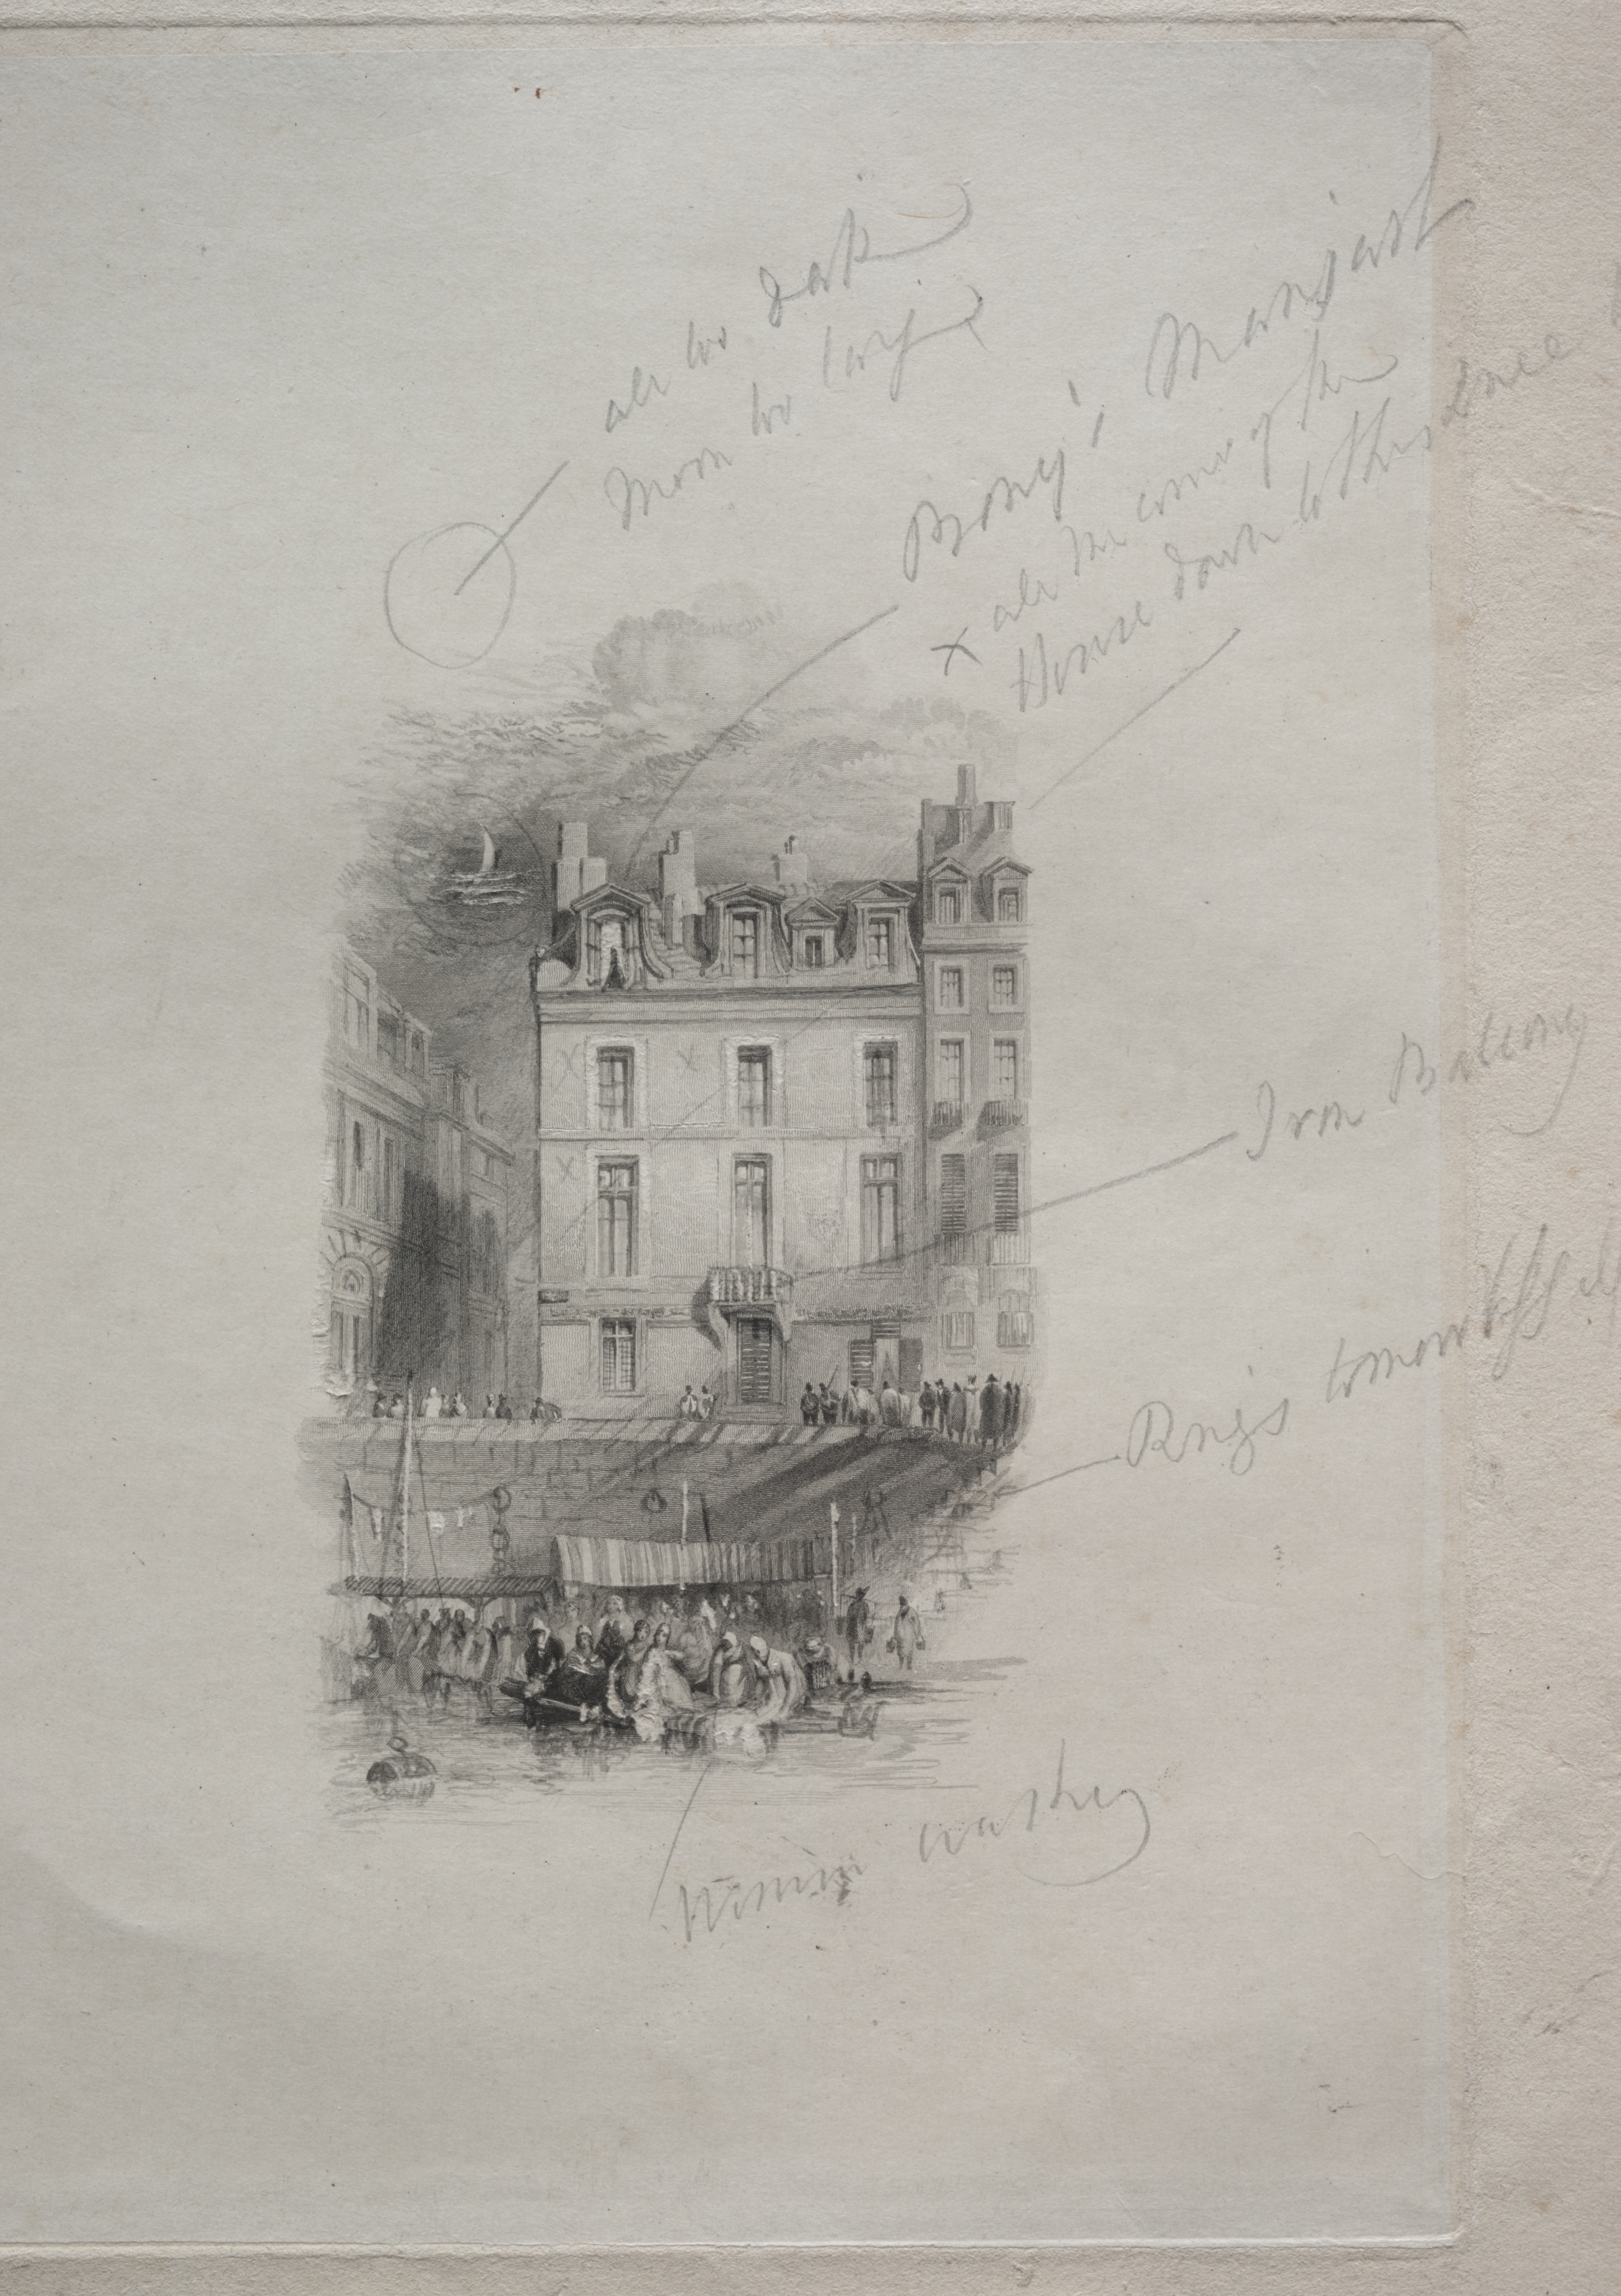 all too dark
Moon too large
Bony's Mansard
x all the corner of the
House down to this Line
Iron Balcony
Rings to
Women washing